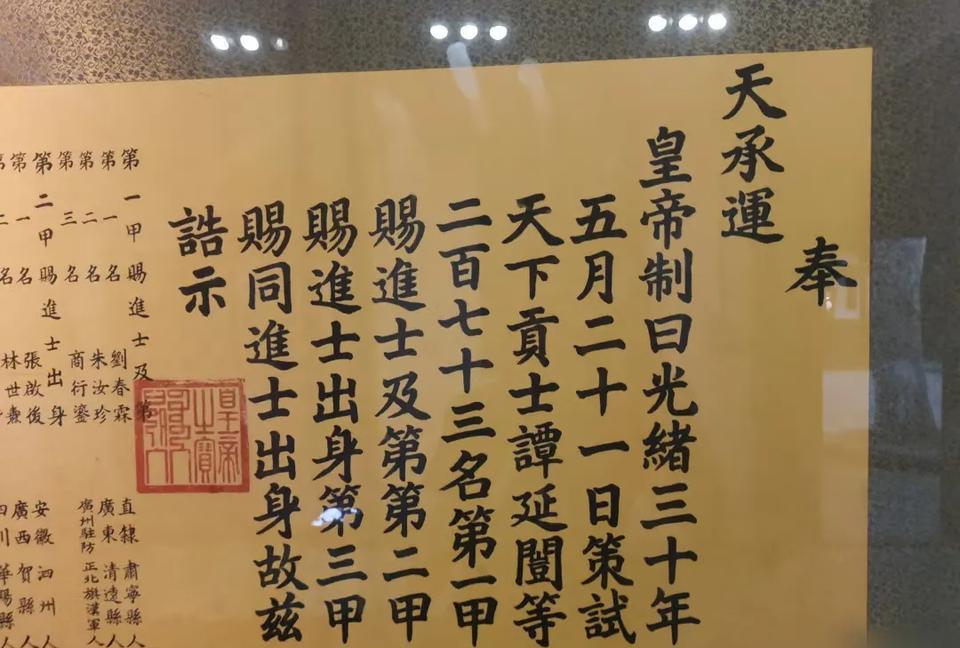 奉
天承運
皇帝制曰光緒三十年
五月二十一日策試
天下貢士譚延闓等
二百七十三名第一甲
賜進士及第第二甲
賜進士出身第三甲
賜同進士出身故兹
誥示
皇帝之寶
第一甲賜進士及第
第一名 劉春霖 直隸 肅寧縣人
第二名 朱汝珍 廣東 清遠縣人
第三名 商衍鎏 廣州駐防 正北旗漢軍人
第二甲賜進士出身
第一名 張啟後 安徽 泗州人
第二名 林世燾 廣西 賀縣人
四川 華陽縣人